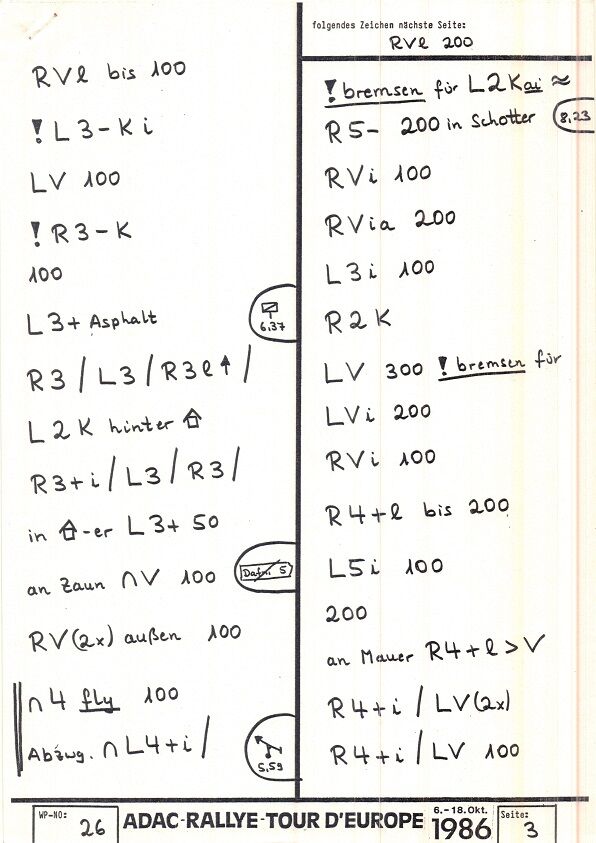 RVl bis 100
! L3-Ki
LV 100
! R3-K
100
L3+ Asphalt
6,37
R3 / L3 / R3l↑ /
L2K hinter ⇧
R3+i / L3 / R3 /
in ⇧-er L3+ 50
an Zaun ∩V 100
5
RV(2x) außen 100
∩4 fly 100
Abzwg. ∩L4+i /
5,59
folgendes Zeichen nächste Seite:
RVl 200
! bremsen für L2Kai ≈
R5- 200 in Schotter
8,23
RVi 100
RVia 200
L3i 100
R2K
LV 300 ! bremsen für
LVi 200
RVi 100
R4+l bis 200
L5i 100
200
an Mauer R4+l > V
R4+i / LV(2x)
R4+i / LV 100
WP-NO: 26
ADAC-RALLYE-TOUR D'EUROPE
6.-18.Okt.
1986
Seite: 3